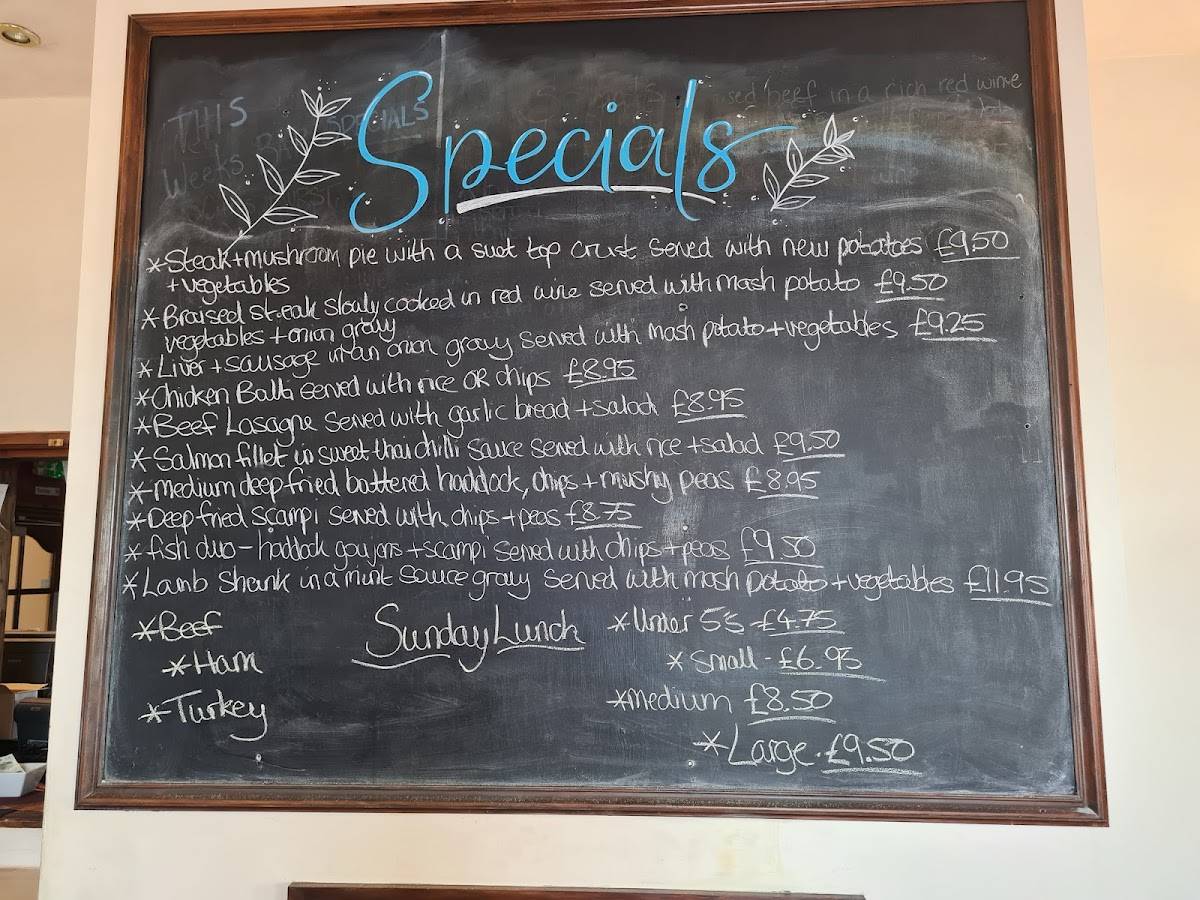 THIS
Weeks
SPECIALS
Specials
beef in a rich red wine
wine
*Steak+mushroom pie with a suet top crust served with new potatoes £9.50
+vegetables
*Braised steak slowly cooked in red wine served with mash potato £9.50
vegetables + onion gravy
*Liver + sausage in an onion gravy served with mash potato + vegetables £9.25
*Chicken Balti served with rice OR chips £8.95
*Beef Lasagne served with garlic bread + salad £8.95
*Salmon fillet in sweet thai chilli sauce served with rice + salad £9.50
*medium deep fried battered haddock, chips + mushy peas £8.95
*Deep fried Scampi served with chips + peas £8.75
*fish duo - haddock goujons + scampi served with chips + peas £9.50
*Lamb Shank in a mint sauce gravy served with mash potato + vegetables £11.95
Sunday Lunch
*Beef
*Ham
*Turkey
*Under 5's - £4.75
*Small - £6.95
*medium £8.50
*Large - £9.50